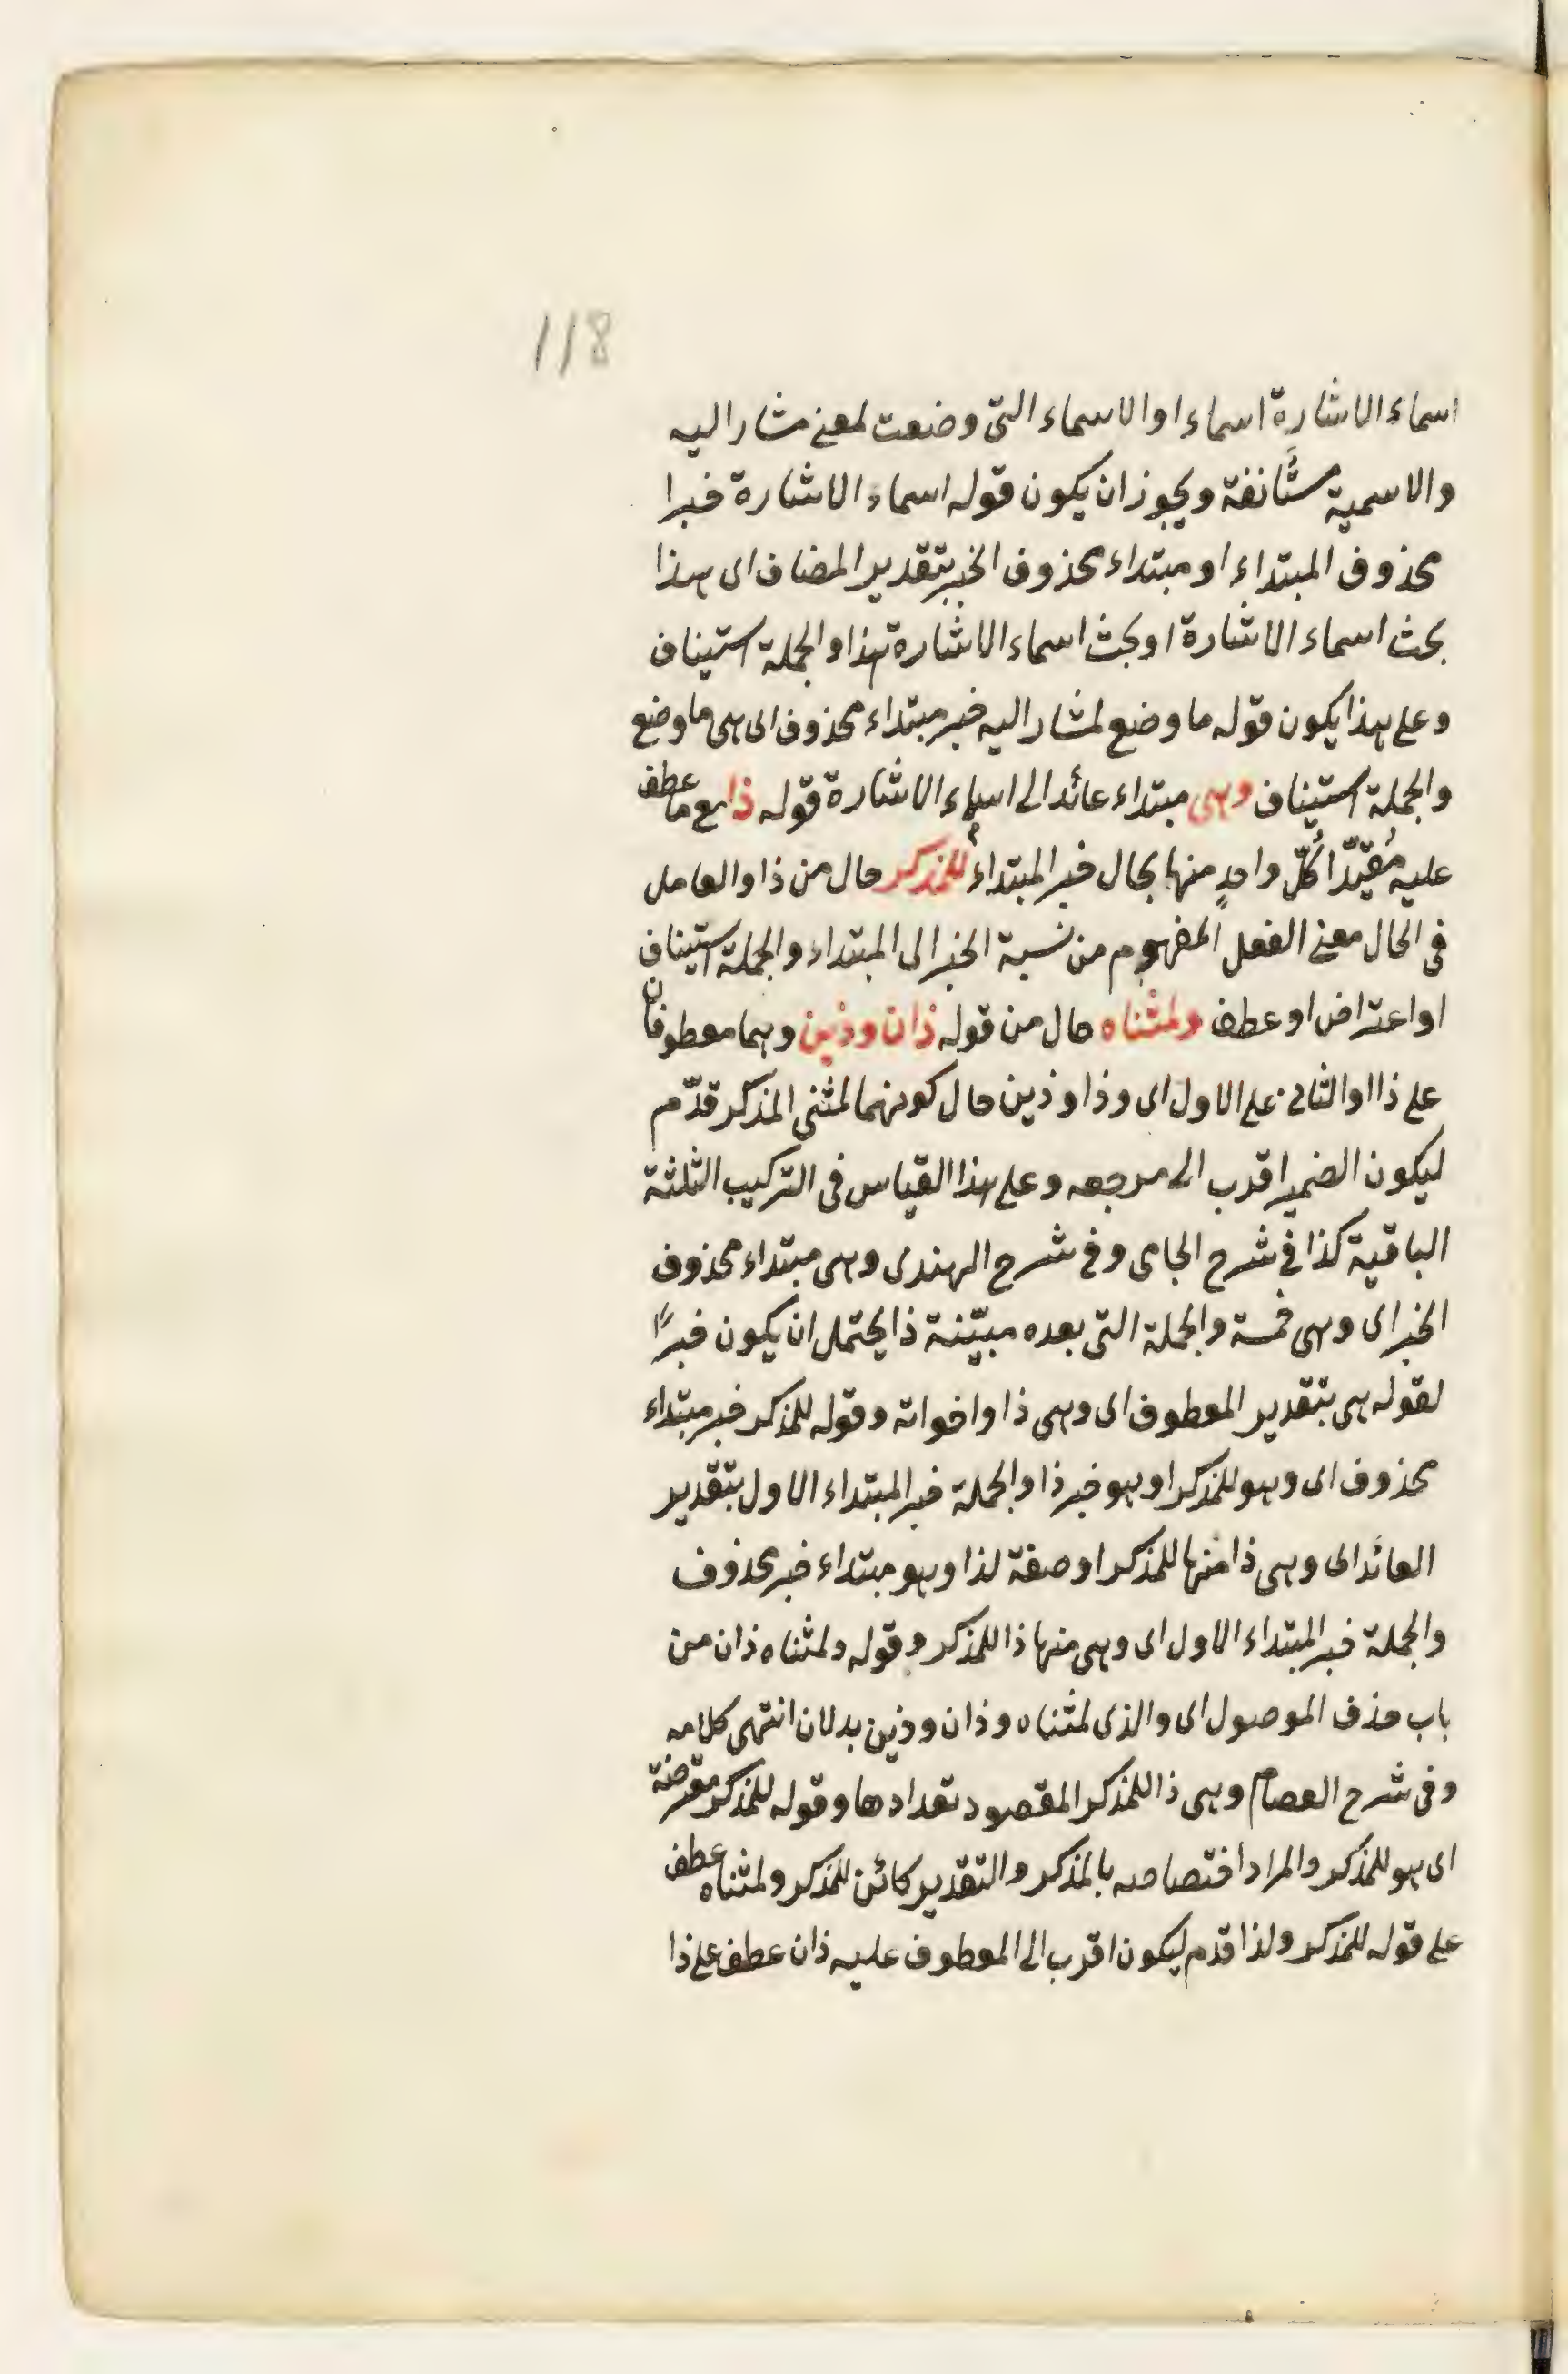 118
اسماء الاشارة اسماء او الاسماء التى وضعت لمعنى مشار اليه
والاسمية مستأنفة ويجوز ان يكون قوله اسماء الاشارة خبرا
محذوف المبتداء او مبتداء محذوف الخبر بتقدير المضاف اى هذا
بحث اسماء الاشارة او بحث اسماء الاشارة هذا والجملة استيناف
وعلى هذا يكون قوله ما وضع لمشار اليه خبر مبتداء محذوف اى هى ما وضع
والجملة استيناف وهى مبتداء عائد الى اسماء الاشارة قوله ذا مع ما عطف
عليه مُقيّدًا كُلّ واحدٍ منها بحال خبر المبتداء للمذكر حال من ذا والعامل
فى الحال معنى الفعل المفهوم من نسبة الخبر الى المبتداء والجملة استيناف
او اعتراض او عطف ولمثناه حال من قوله ذان وذين وهما معطوفان
على ذا او الثانى على الاول اى وذا وذين حال كونهما لمثنى المذكر قدّم
ليكون الضمير اقرب الى مرجعه وعلى هذا القياس فى التركيب الثلثة
الباقية كذا فى شرح الجامى وفى شرح الهندى وهى مبتداء محذوف
الخبر اى وهى خمسة والجملة التى بعده مبيّنة ذا يحتمل ان يكون خبرًا
لقوله هى بتقدير المعطوف اى وهى ذا واخواته وقوله للمذكر خبر مبتداء
محذوف اى وهو للمذكر او هو خبر ذا والجملة خبر المبتداء الاول بتقدير
العائد اى وهى ذا منها للمذكر او صفة لذا وهو مبتداء خبر محذوف
والجملة خبر المبتداء الاول اى وهى منها ذا للمذكر وقوله ولمثناه ذان من
باب حذف الموصول اى والذى لمثناه وذان وذين بدلان انتهى كلامه
وفى شرح العصام وهى ذا للمذكر المقصود تعدادها وقوله للمذكر معترضة
اى هو للمذكر والمراد اختصاصه بالمذكر والتقدير كائن للمذكر ولمثناه عطف
على قوله للمذكر ولذا قدم ليكون اقرب الى المعطوف عليه ذان عطف على ذا